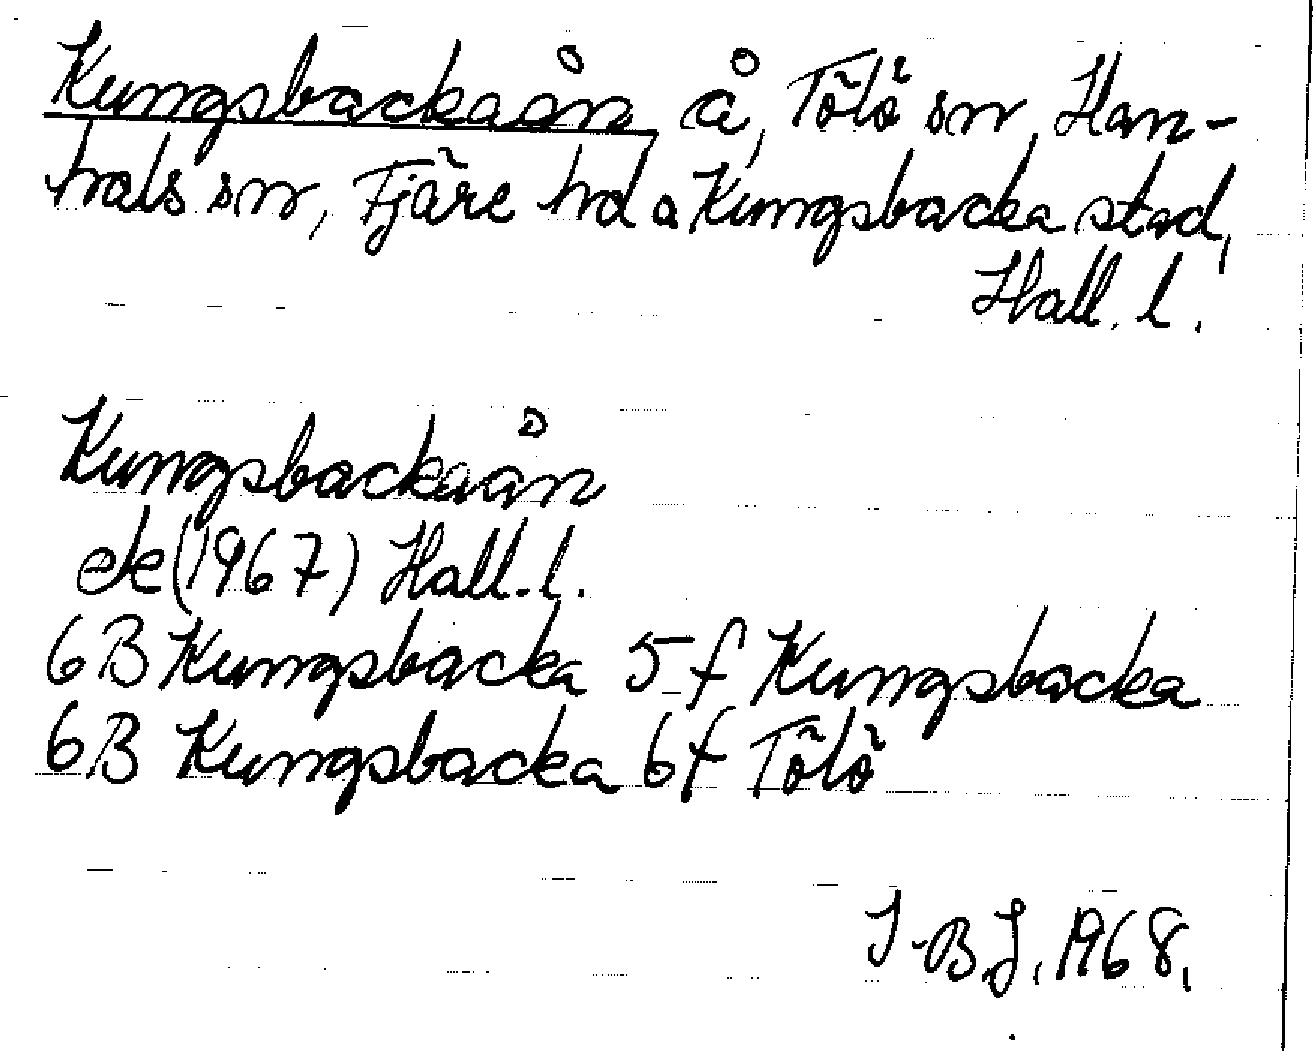 Kungsbackaån, å, Tölö sn, Han-
hals sn, Fjäre hd o Kungsbacka stad,
Hall. l.
Kungsbackaån
ek (1967) Hall. l.
6B Kungsbacka 5f Kungsbacka
6B Kungsbacka 6f Tölö
I-BJ, 1968.